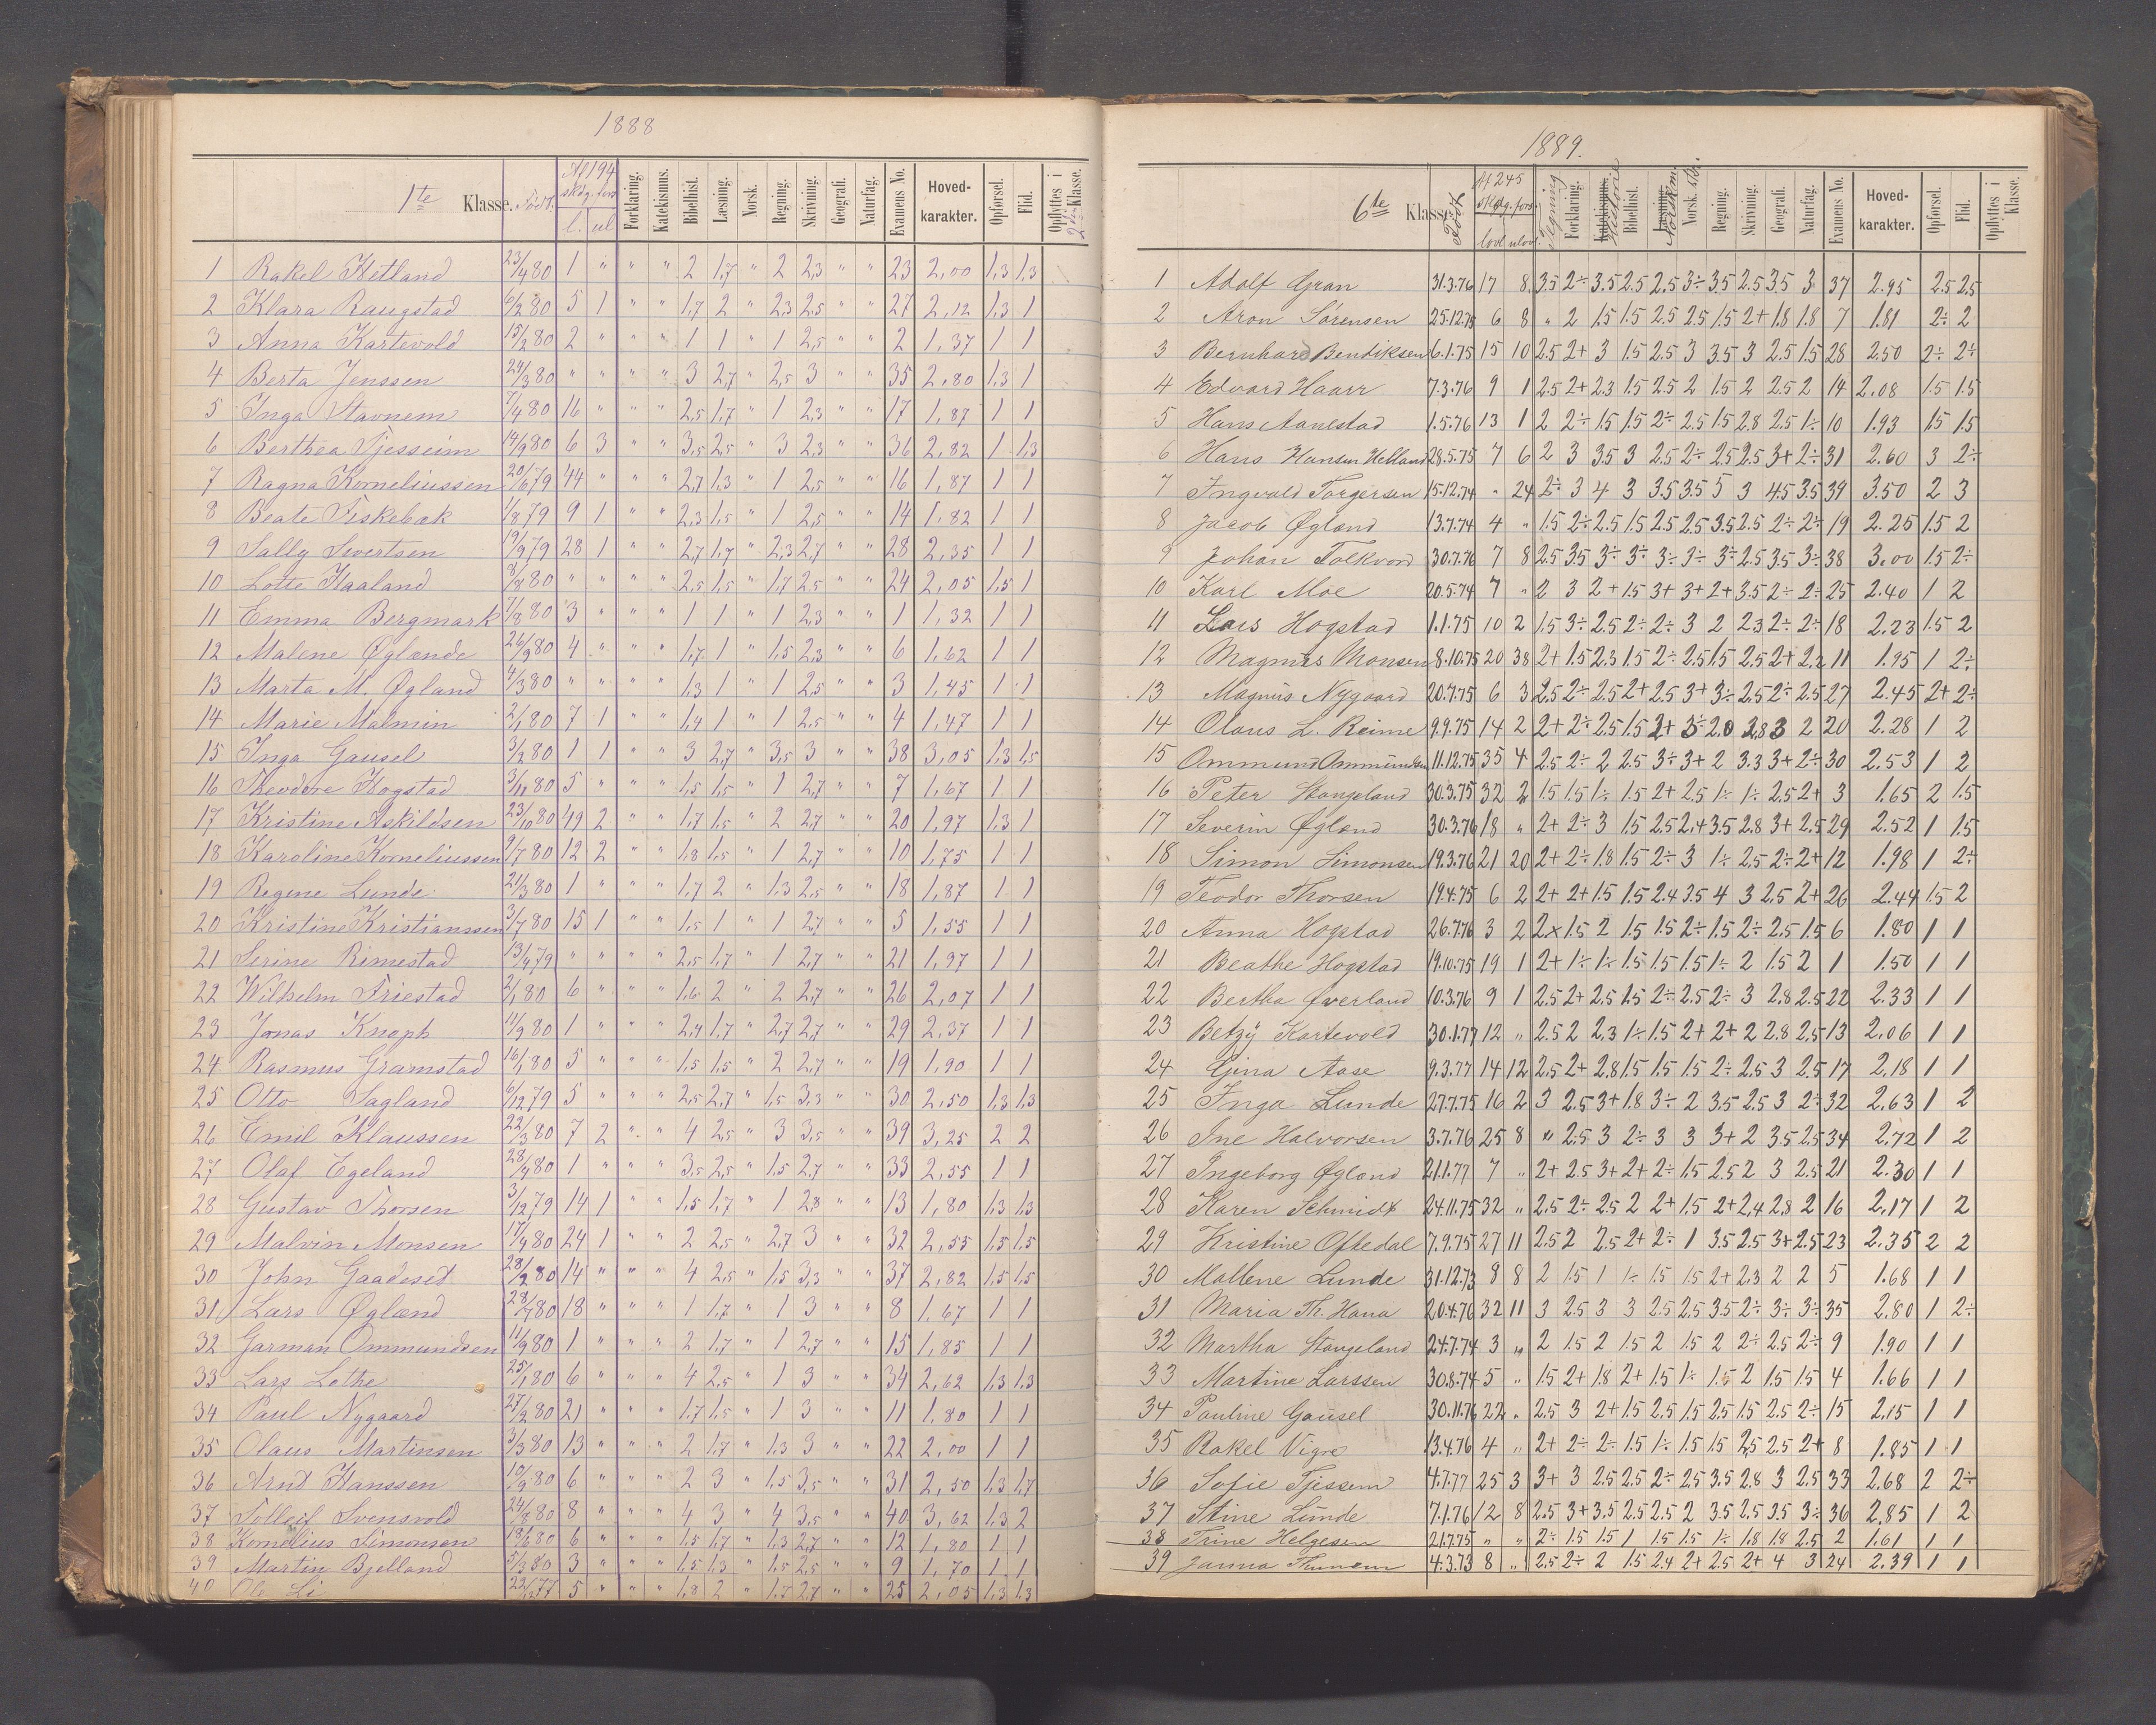 1888
1te Klasse. Født. Af 194 skdg. fors. l. ul. Forklaring. Katekismus. Bibelhist. Læsning. Norsk. Regning. Skrivning. Geografi. Naturfag. Examens No. Hoved-karakter. Opførsel. Flid. Opflyttes i 2den Klasse.
1 Rakel Hetland 23/4 80 1 " " " 2 1,7 " 2 2,3 " " 23 2,00 1,3 1,3
2 Klara Raugstad 6/2 80 5 1 " " 1,7 2 " 2,3 2,5 " " 27 2,12 1,3 1
3 Anna Kartevold 15/2 80 2 " " " 1 1 " 1 2,5 " " 2 1,37 1 1
4 Berta Jenssen 24/3 80 " " " " 3 2,7 " 2,5 3 " " 35 2,80 1,3 1
5 Inga Stavnem 7/4 80 16 " " " 2,5 1,7 " 1 2,3 " " 17 1,87 1 1
6 Berthea Tjesseim 14/9 80 6 3 " " 3,5 2,5 " 3 2,3 " " 36 2,82 1 1,3
7 Ragna Korneliussen 20/6 79 44 " " " 2,7 1,3 " 1 2,5 " " 16 1,87 1 1
8 Beate Fiskebæk 1/8 79 9 1 " " 2,3 1,5 " 1 2,5 " " 14 1,82 1 1
9 Sally Sivertsen 19/9 79 28 1 " " 2,7 1,7 " 2,3 2,7 " " 28 2,35 1 1
10 Lotte Haaland 8/8 80 " " " " 2,5 1,5 " 1,7 2,5 " " 24 2,05 1,5 1
11 Emma Bergmark 7/8 80 3 " " " 1 1 " 1 2,3 " " 1 1,32 1 1
12 Malene Øglænde 26/9 80 4 " " " 1,7 1 " 1,5 2,3 " " 6 1,62 1 1
13 Marta M. Øgland 4/3 80 " " " " 1,3 1 " 1 2,5 " " 3 1,45 1 1
14 Marie Malmin 2/1 80 7 1 " " 1,4 1 " 1 2,5 " " 4 1,47 1 1
15 Inga Gausel 3/2 80 1 1 " " 3 2,7 " 3,5 3 " " 38 3,05 1,3 1,5
16 Theodore Hogstad 3/11 80 5 " " " 1,5 1,5 " 1 2,7 " " 7 1,67 1 1
17 Kristine Askildsen 23/10 80 49 2 " " 1,7 1,5 " 2 2,7 " " 20 1,97 1,3 1
18 Karoline Korneliussen 9/7 80 12 2 " " 1,8 1,5 " 1 2,7 " " 10 1,75 1 1
19 Regine Lunde 21/3 80 1 " " " 1,7 2 " 1,3 2,5 " " 18 1,87 1 1
20 Kristine Kristianssen 3/7 80 15 1 " " 1,5 1 " 1 2,7 " " 5 1,55 1 1
21 Serine Rimestad 13/4 79 " " " " 2,5 1,7 " 1 2,7 " " 21 1,97 1 1
22 Wilhelm Friestad 2/1 80 6 " " " 1,6 2 " 2 2,7 " " 26 2,07 1 1
23 Jonas Knoph 11/9 80 1 " " " 2,4 1,7 " 2,7 2,7 " " 29 2,37 1 1
24 Rasmus Gramstad 16/1 80 5 " " " 1,5 1,5 " 2 2,7 " " 19 1,90 1 1
25 Otto Sagland 6/12 79 5 " " " 2,5 2,7 " 1,5 3,3 " " 30 2,50 1,3 1,3
26 Emil Klaussen 22/3 80 7 2 " " 4 2,5 " 3 3,5 " " 39 3,25 2 2
27 Olaf Egeland 28/4 80 1 " " " 3,5 2,5 " 1,5 2,7 " " 33 2,55 1 1
28 Gustav Thorsen 3/12 79 14 1 " " 1,5 1,7 " 1 2,8 " " 13 1,80 1,3 1,3
29 Malvin Monsen 17/4 80 24 1 " " 2 2,5 " 2,7 3 " " 32 2,55 1,5 1,5
30 John Gaadeset 28/2 80 14 " " " 4 2,5 " 1,5 3,3 " " 37 2,82 1,5 1,5
31 Lars Øglænd 28/7 80 18 " " " 1 1,7 " 1 3 " " 8 1,67 1 1
32 Garman Ommundsen 11/9 80 1 " " " 2 1,7 " 1 2,7 " " 15 1,85 1 1
33 Lars Lethe 25/1 80 6 " " " 4 2,5 " 1 3 " " 34 2,62 1,3 1,3
34 Paul Nygaard 27/2 80 21 " " " 1,7 1,5 " 1 3 " " 11 1,80 1 1
35 Olaus Martinsen 3/3 80 13 " " " 2 1,7 " 1,3 3 " " 22 2,00 1 1
36 Arnt Hanssen 10/9 80 6 " " " 2 3 " 1,5 3,5 " " 31 2,50 1,3 1,7
37 Tolleif Svensvold 24/8 80 8 " " " 4 3 " 4 3,5 " " 40 3,62 1,3 2
38 Kornelius Simonsen 18/6 80 6 " " " 1,5 1,7 " 1,3 2,7 " " 12 1,80 1 1
39 Martin Bjelland 5/3 80 3 " " " 1,5 1,3 " 1,5 2,5 " " 9 1,70 1 1
40 Ole Li 22/12 77 5 " " " 1,8 2 " 1,7 2,7 " " 25 2,05 1,3 1,3
1889.
6te Klasse. Født Af 245 skdg. fors. lovl. ulovl. Tegning Forklaring. Katekismus. Historie Bibelhist. Læsning. Norsk mu. Norsk. skr. Regning. Skrivning. Geografi. Naturfag. Examens No. Hoved-karakter. Opførsel. Flid. Opflyttes i Klasse.
1 Adolf Gran 31.3.76 17 8 3.5 2÷ 3.5 2.5 2.5 3÷ 3.5 2.5 3.5 3 37 2.95 2.5 2.5
2 Aron Sørensen 25.12.75 6 8 " 2 1.5 1.5 2.5 2.5 1.5 2+ 1.8 1.8 7 1.81 2÷ 2
3 Bernhard Bendiksen 6.1.75 15 10 2.5 2+ 3 1.5 2.5 3 3.5 3 2.5 1.5 28 2.50 2÷ 2÷
4 Edvard Haarr 7.3.76 9 1 2.5 2+ 2.3 1.5 2.5 2 1.5 2 2.5 2 14 2.08 1.5 1.5
5 Hans Aanestad 1.5.76 13 1 2 2÷ 1.5 1.5 2÷ 2.5 1.5 2.8 2.5 1÷ 10 1.93 1.5 1.5
6 Hans Hansen Helland 28.5.75 7 6 2 3 3.5 3 2.5 2÷ 2.5 2.5 3+ 2÷ 31 2.60 3 2÷
7 Ingvald Torgersen 15.12.74 " 24 2÷ 3 4 3 3.5 3.5 5 3 4.5 3.5 39 3.50 2 3
8 Jacob Øgland 13.7.74 4 " 1.5 2÷ 2.5 1.5 2.5 2.5 3.5 2.5 2÷ 2÷ 19 2.25 1.5 2
9 Johan Folkvord 30.7.76 7 8 2.5 3.5 3÷ 3÷ 3÷ 3÷ 3÷ 2.5 3.5 3÷ 38 3.00 1.5 2÷
10 Karl Moe 20.5.74 7 " 2 3 2+ 1.5 3+ 3+ 2+ 3.5 2÷ 2÷ 25 2.40 1 2
11 Lars Hogstad 1.1.75 10 2 1.5 3÷ 2.5 2÷ 2÷ 3 2 2.3 2÷ 2÷ 18 2.23 1.5 2
12 Magnus Monsen 8.10.75 20 38 2+ 1.5 2.3 1.5 2÷ 2.5 1.5 2.5 2+ 2.2 11 1.95 1 2÷
13 Magnus Nygaard 20.7.75 6 3 2.5 2÷ 2.5 2+ 2.5 3+ 3÷ 2.5 2÷ 2.5 27 2.45 2+ 2÷
14 Olaus L. Reime 9.9.75 14 2 2+ 2÷ 2.5 1.5 2+ 3÷ 2.0 2.8 3 2 20 2.28 1 2
15 Ommund Ommundsen 11.12.75 35 4 2.5 2÷ 2 2.5 3÷ 3+ 2 3.3 3+ 2÷ 30 2.53 1 2
16 Peter Stangeland 30.3.75 32 2 1.5 1.5 1÷ 1.5 2+ 2.5 1÷ 1÷ 2.5 2+ 3 1.65 2 1.5
17 Severin Øgland 30.3.76 18 " 2+ 2÷ 3 1.5 2.5 2.4 3.5 2.8 3+ 2.5 29 2.52 1 1.5
18 Simon Simonsen 19.3.76 21 20 2+ 2÷ 1.8 1.5 2÷ 3 1÷ 2.5 2÷ 2+ 12 1.98 1 2÷
19 Teodor Thorsen 19.4.75 6 2 2+ 2+ 1.5 1.5 2.4 3.5 4 3 2.5 2+ 26 2.44 1.5 2
20 Anna Hogstad 26.7.76 3 2 2x 1.5 2 1.5 1.5 2÷ 1.5 2÷ 2.5 1.5 6 1.80 1 1
21 Beathe Hogstad 19.10.75 19 1 2+ 1÷ 1÷ 1.5 1.5 1.5 1÷ 2 1.5 2 1 1.50 1 1
22 Bertha Øverland 10.3.76 9 1 2.5 2+ 2.5 1.5 2÷ 2.5 2÷ 3 2.8 2.5 22 2.33 1 1
23 Betzy Kartevold 30.1.77 12 " 2.5 2 2.3 1÷ 1.5 2+ 2+ 2 2.8 2.5 13 2.06 1 1
24 Gina Aase 9.3.77 14 12 2.5 2+ 2.8 1.5 1.5 1.5 2÷ 2.5 3 2.5 17 2.18 1 1
25 Inga Lunde 27.7.75 16 2 3 2.5 3+ 1.8 3÷ 2 3.5 2.5 3 2÷ 32 2.63 1 2
26 Ine Halvorsen 3.7.76 25 8 " 2.5 3 2÷ 3 3 3+ 2 3.5 2.5 34 2.72 1 2
27 Ingeborg Øgland 21.1.77 7 " 2+ 2.5 3+ 2+ 2÷ 1.5 2.5 2 3 2.5 21 2.30 1 1
28 Karen Schmidt 24.11.75 32 " 2.5 2÷ 2.5 2 2+ 1.5 2+ 2.4 2.8 2 16 2.17 1 2
29 Kristine Oftedal 7.9.75 27 11 2.5 2 2.5 2+ 2÷ 1 3.5 2.5 3+ 2.5 23 2.35 2 2
30 Mallene Lunde 31.12.73 8 8 2 1.5 1 1÷ 1.5 1.5 2+ 2.3 2 2 5 1.68 1 1
31 Maria Th. Hana 20.4.76 32 11 3 2.5 3 3 2.5 2.5 3.5 2÷ 3÷ 3÷ 35 2.80 1 2÷
32 Martha Stangeland 24.7.74 3 " 2 1.5 2 1.5 2 1.5 2 2÷ 2.5 2÷ 9 1.90 1 1
33 Martine Larssen 30.8.74 5 " 1.5 2+ 1.8 2+ 1.5 1÷ 1.5 2 1.5 1.5 4 1.66 1 1
34 Pauline Gausel 30.11.76 22 " 2.5 3 2+ 1.5 2.5 1.5 2.5 1.5 2.5 2÷ 15 2.15 1 1
35 Rakel Vigre 13.4.76 4 " 2+ 2÷ 2÷ 1.5 1÷ 1.5 1.5 2.5 2.5 2+ 8 1.85 1 1
36 Sofie Tjessem 4.7.77 25 3 3+ 3 2.5 2.5 2÷ 2.5 3.5 2.8 3 2.5 33 2.68 2 2÷
37 Stine Lunde 7.1.76 12 8 2.5 3+ 3.5 2.5 2.5 2 3.5 2.5 3.5 3÷ 36 2.85 1 2
38 Trine Helgesen 21.7.75 " " 2÷ 1.5 1.5 1 1.5 1.5 1÷ 1.8 1.8 2.5 2 1.61 1 1
39 Janna Thunem 4.3.73 8 " 2.5 2÷ 2 1.5 2.4 2+ 2.5 2+ 4 3 24 2.39 1 1